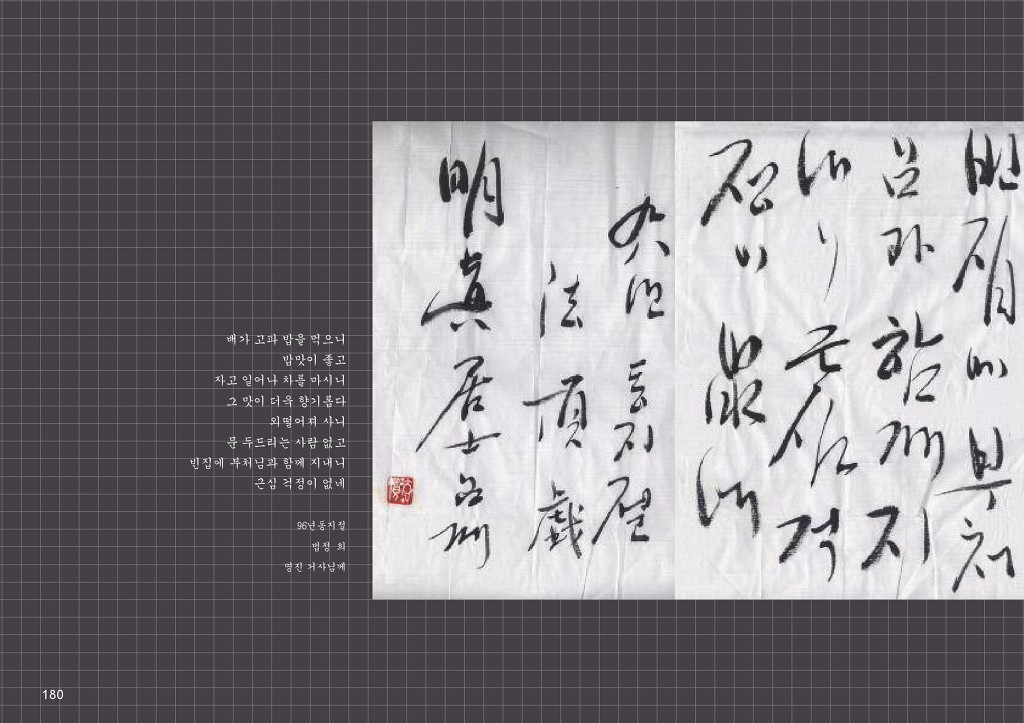 배가 고파 밥을 먹으니
밥맛이 좋고
자고 일어나 차를 마시니
그 맛이 더욱 향기롭다
외떨어져 사니
문 두드리는 사람 없고
빈집에 부처님과 함께 지내니
근심 걱정이 없네
96년동지절
법정 희
명진 거사님께
빈집에 부처
님과 함께 지
내니 근심 걱
정이 없네
동지절
法頂 戱
明眞居士님께
180